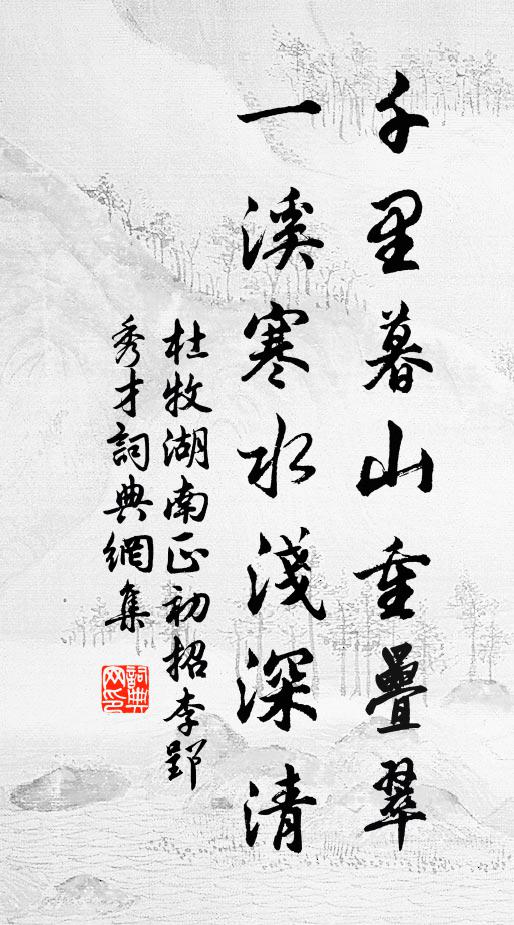 千里暮山重疊翠
一溪寒水淺深清
杜牧湖南正初招李郢
秀才詞典網集
詞典網印